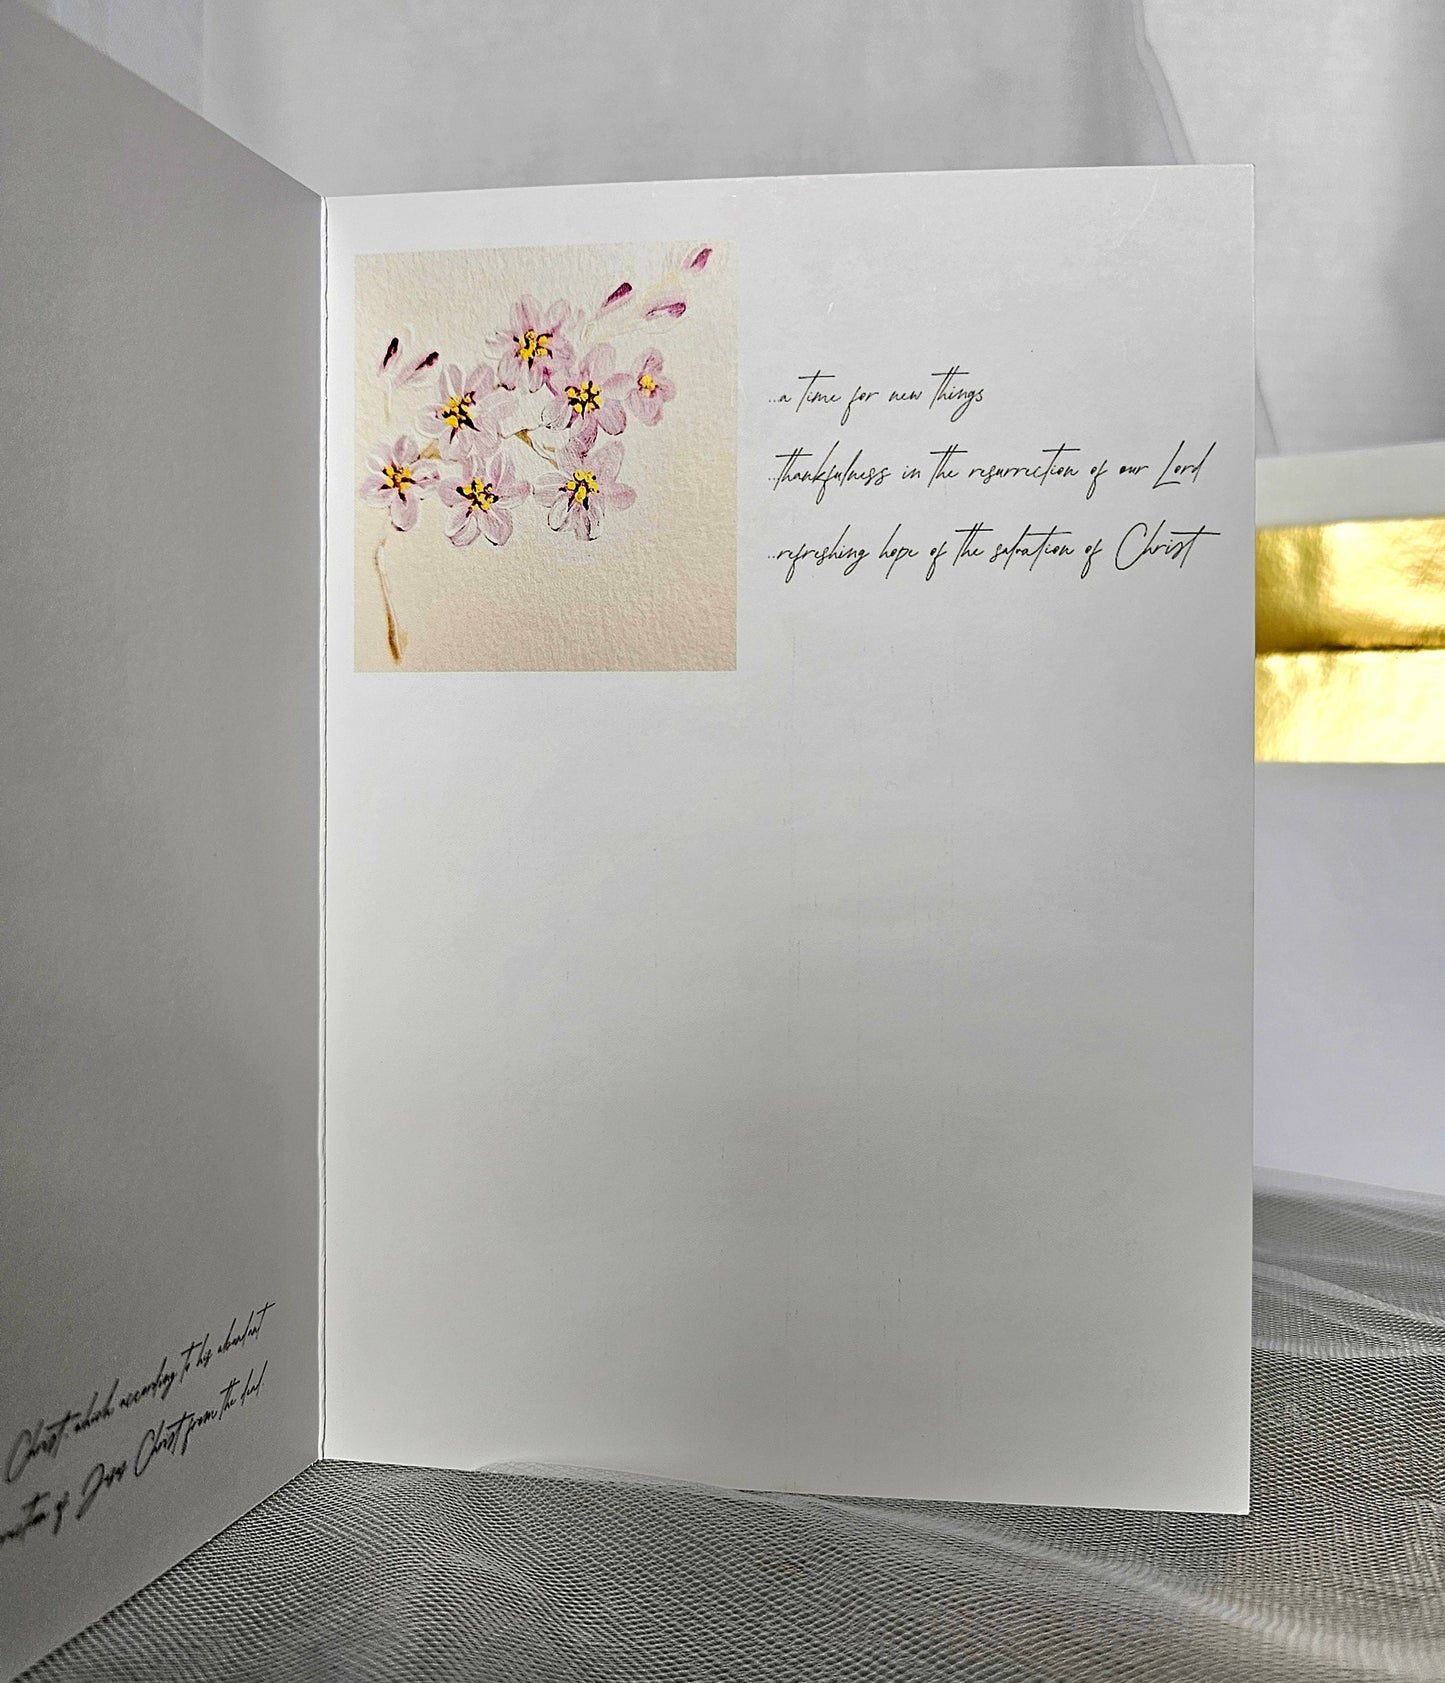 Christ, which according to his abundant
of Jesus Christ from the dead.
...a time for new things
...thankfulness in the resurrection of our Lord
...refreshing hope of the salvation of Christ